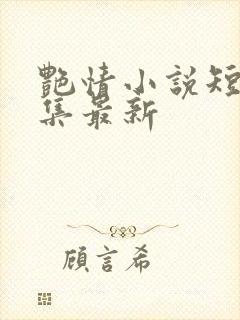 艷情小說短
集最新
顧言希